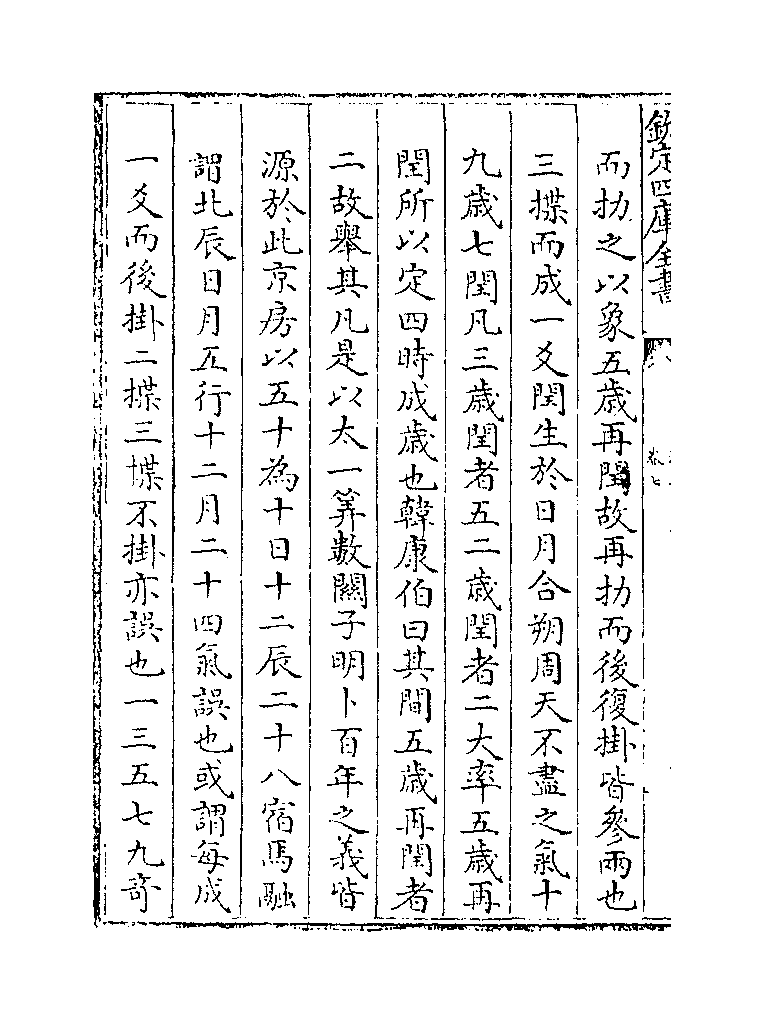 欽定四庫全書
卷七
而扐之以象五歲再閏故再扐而後復掛皆參兩也
三揲而成一爻閏生於日月合朔周天不盡之氣十
九歲七閏凡三歲閏者五二歲閏者二大率五歲再
閏所以定四時成歲也韓康伯曰其間五歲再閏者
二故舉其凡是以太一筭數關子明卜百年之義皆
源於此京房以五十為十日十二辰二十八宿馬融
謂北辰日月五行十二月二十四氣誤也或謂每成
一爻而後掛二揲三揲不掛亦誤也一三五七九奇